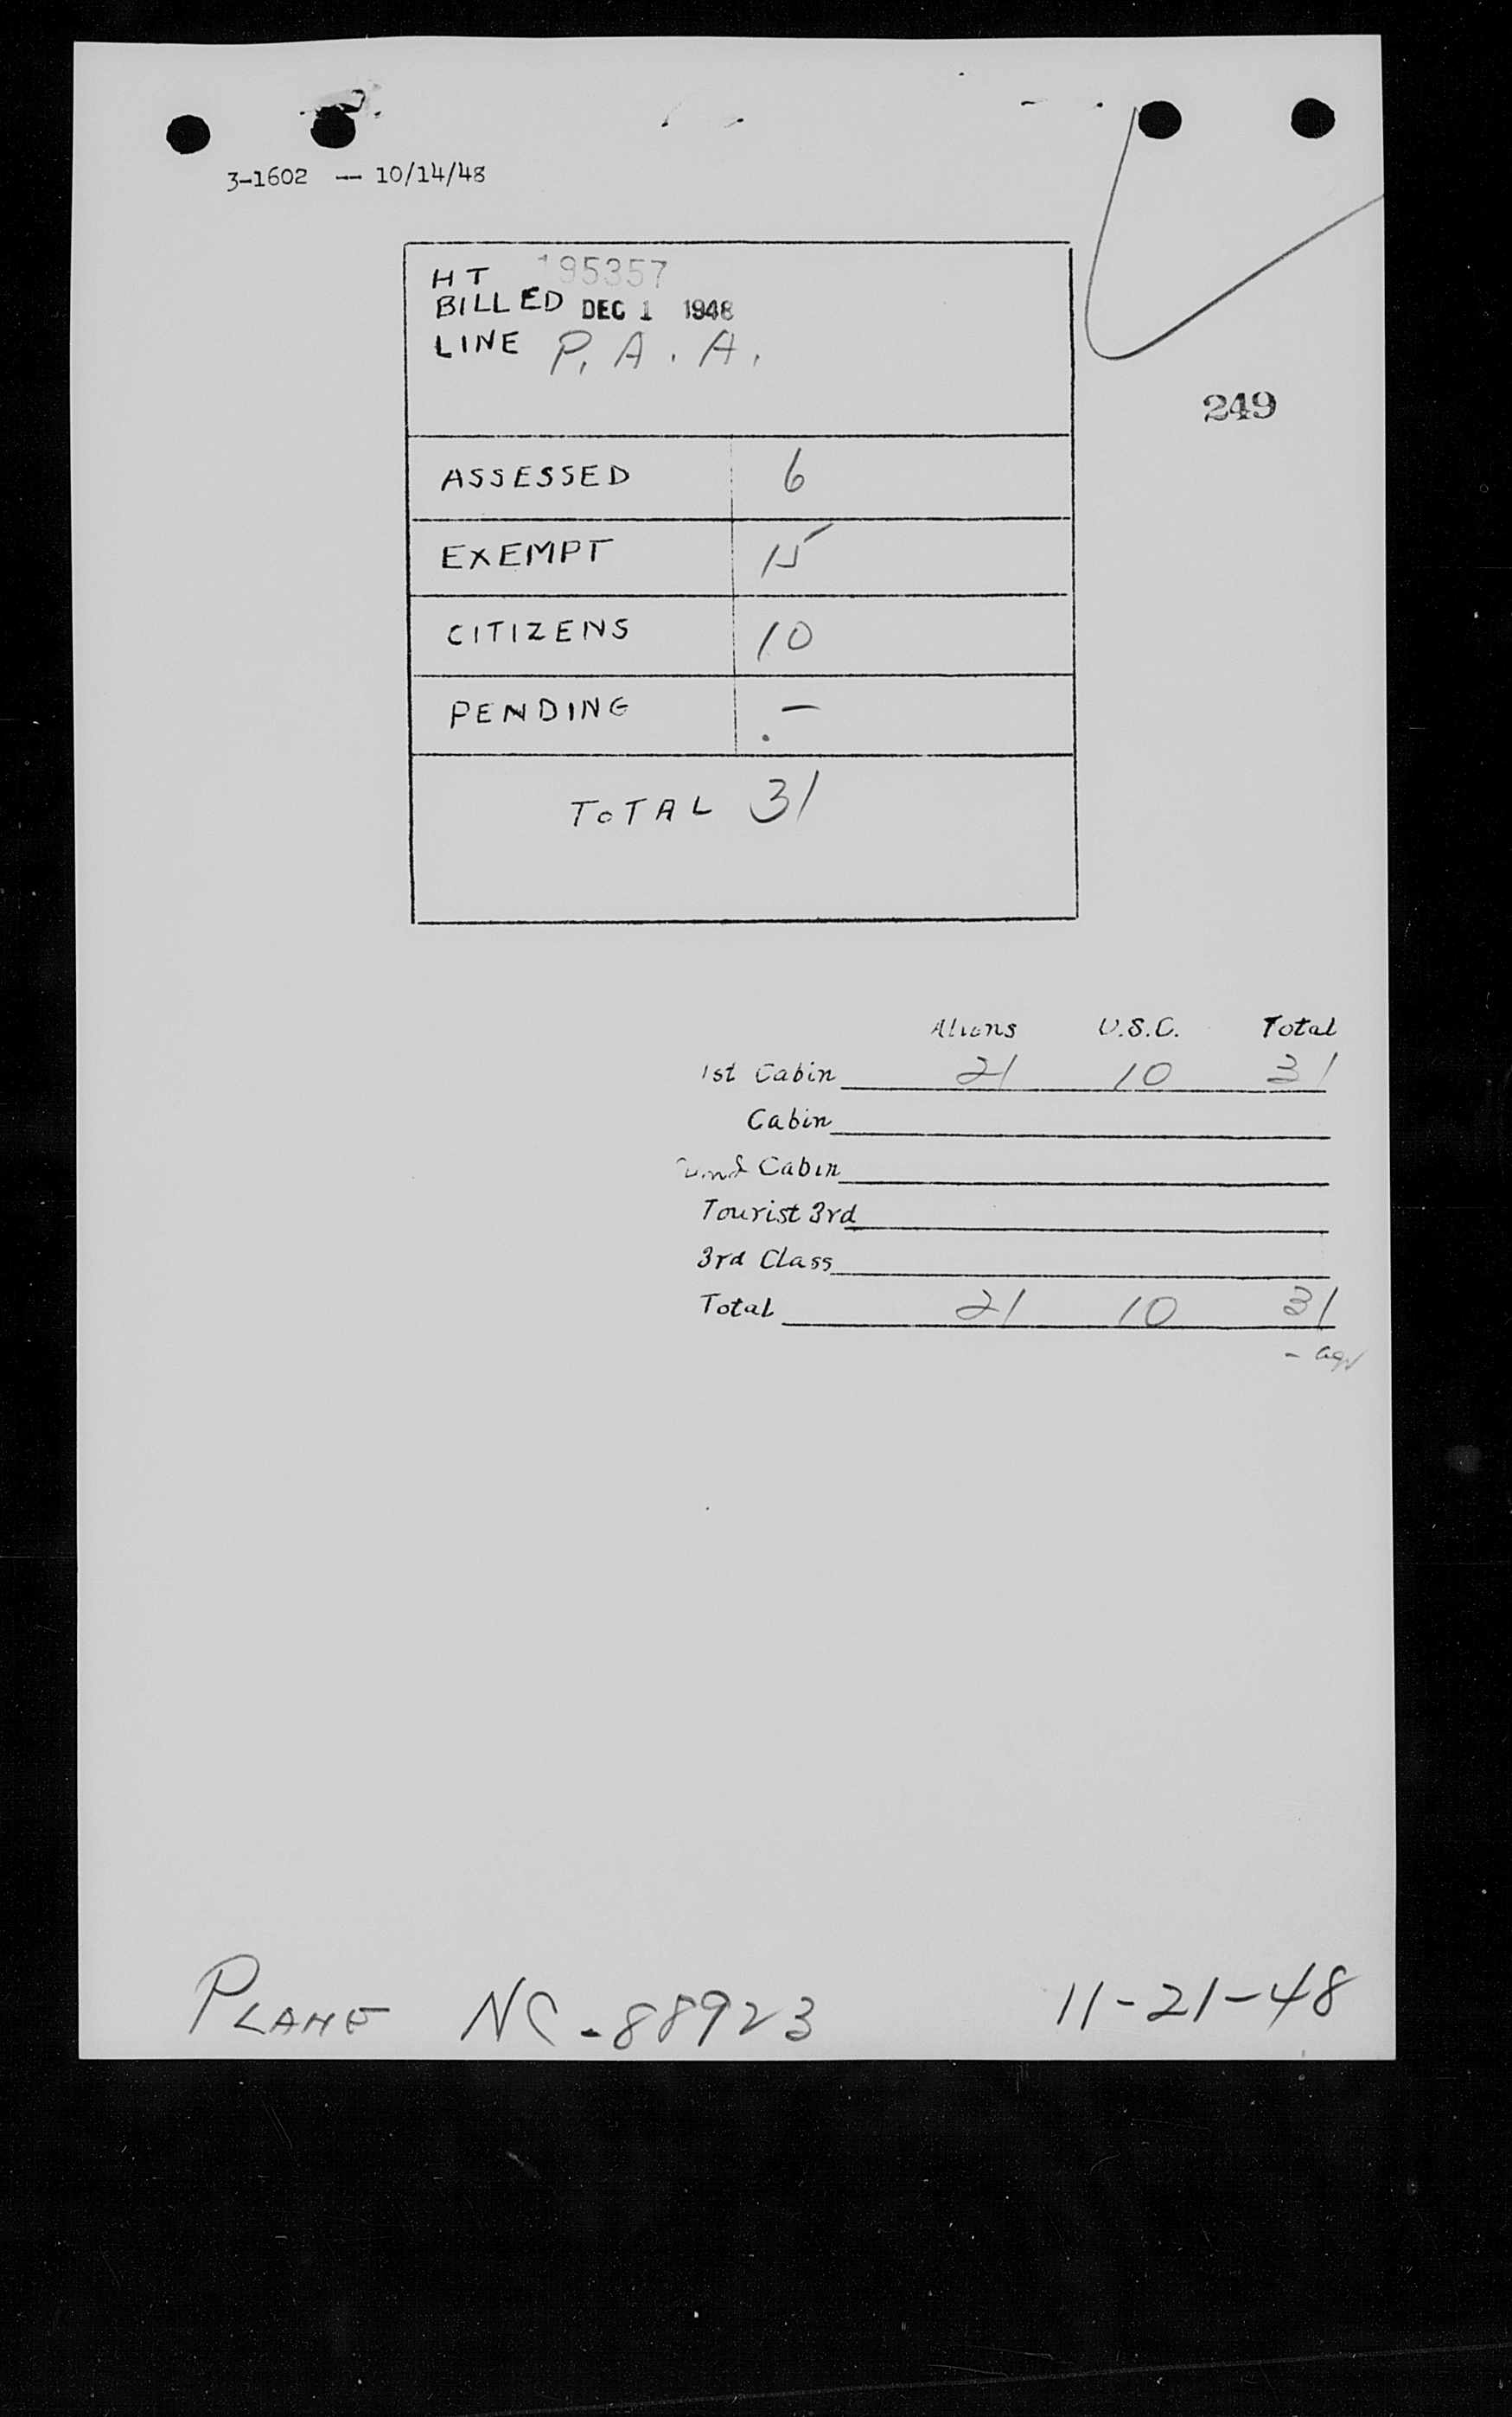 3-1602 -- 10/14/48
HT 195357
BILLED DEC 1 1948
LINE P. A. A.
249
ASSESSED 6
EXEMPT 15
CITIZENS 10
PENDING -
TOTAL 31
Aliens U.S.C. Total
1st Cabin 21 10 31
Cabin
Cabin
Tourist 3rd
3rd Class
Total 21 10 31
PLANE NC-88923 11-21-48